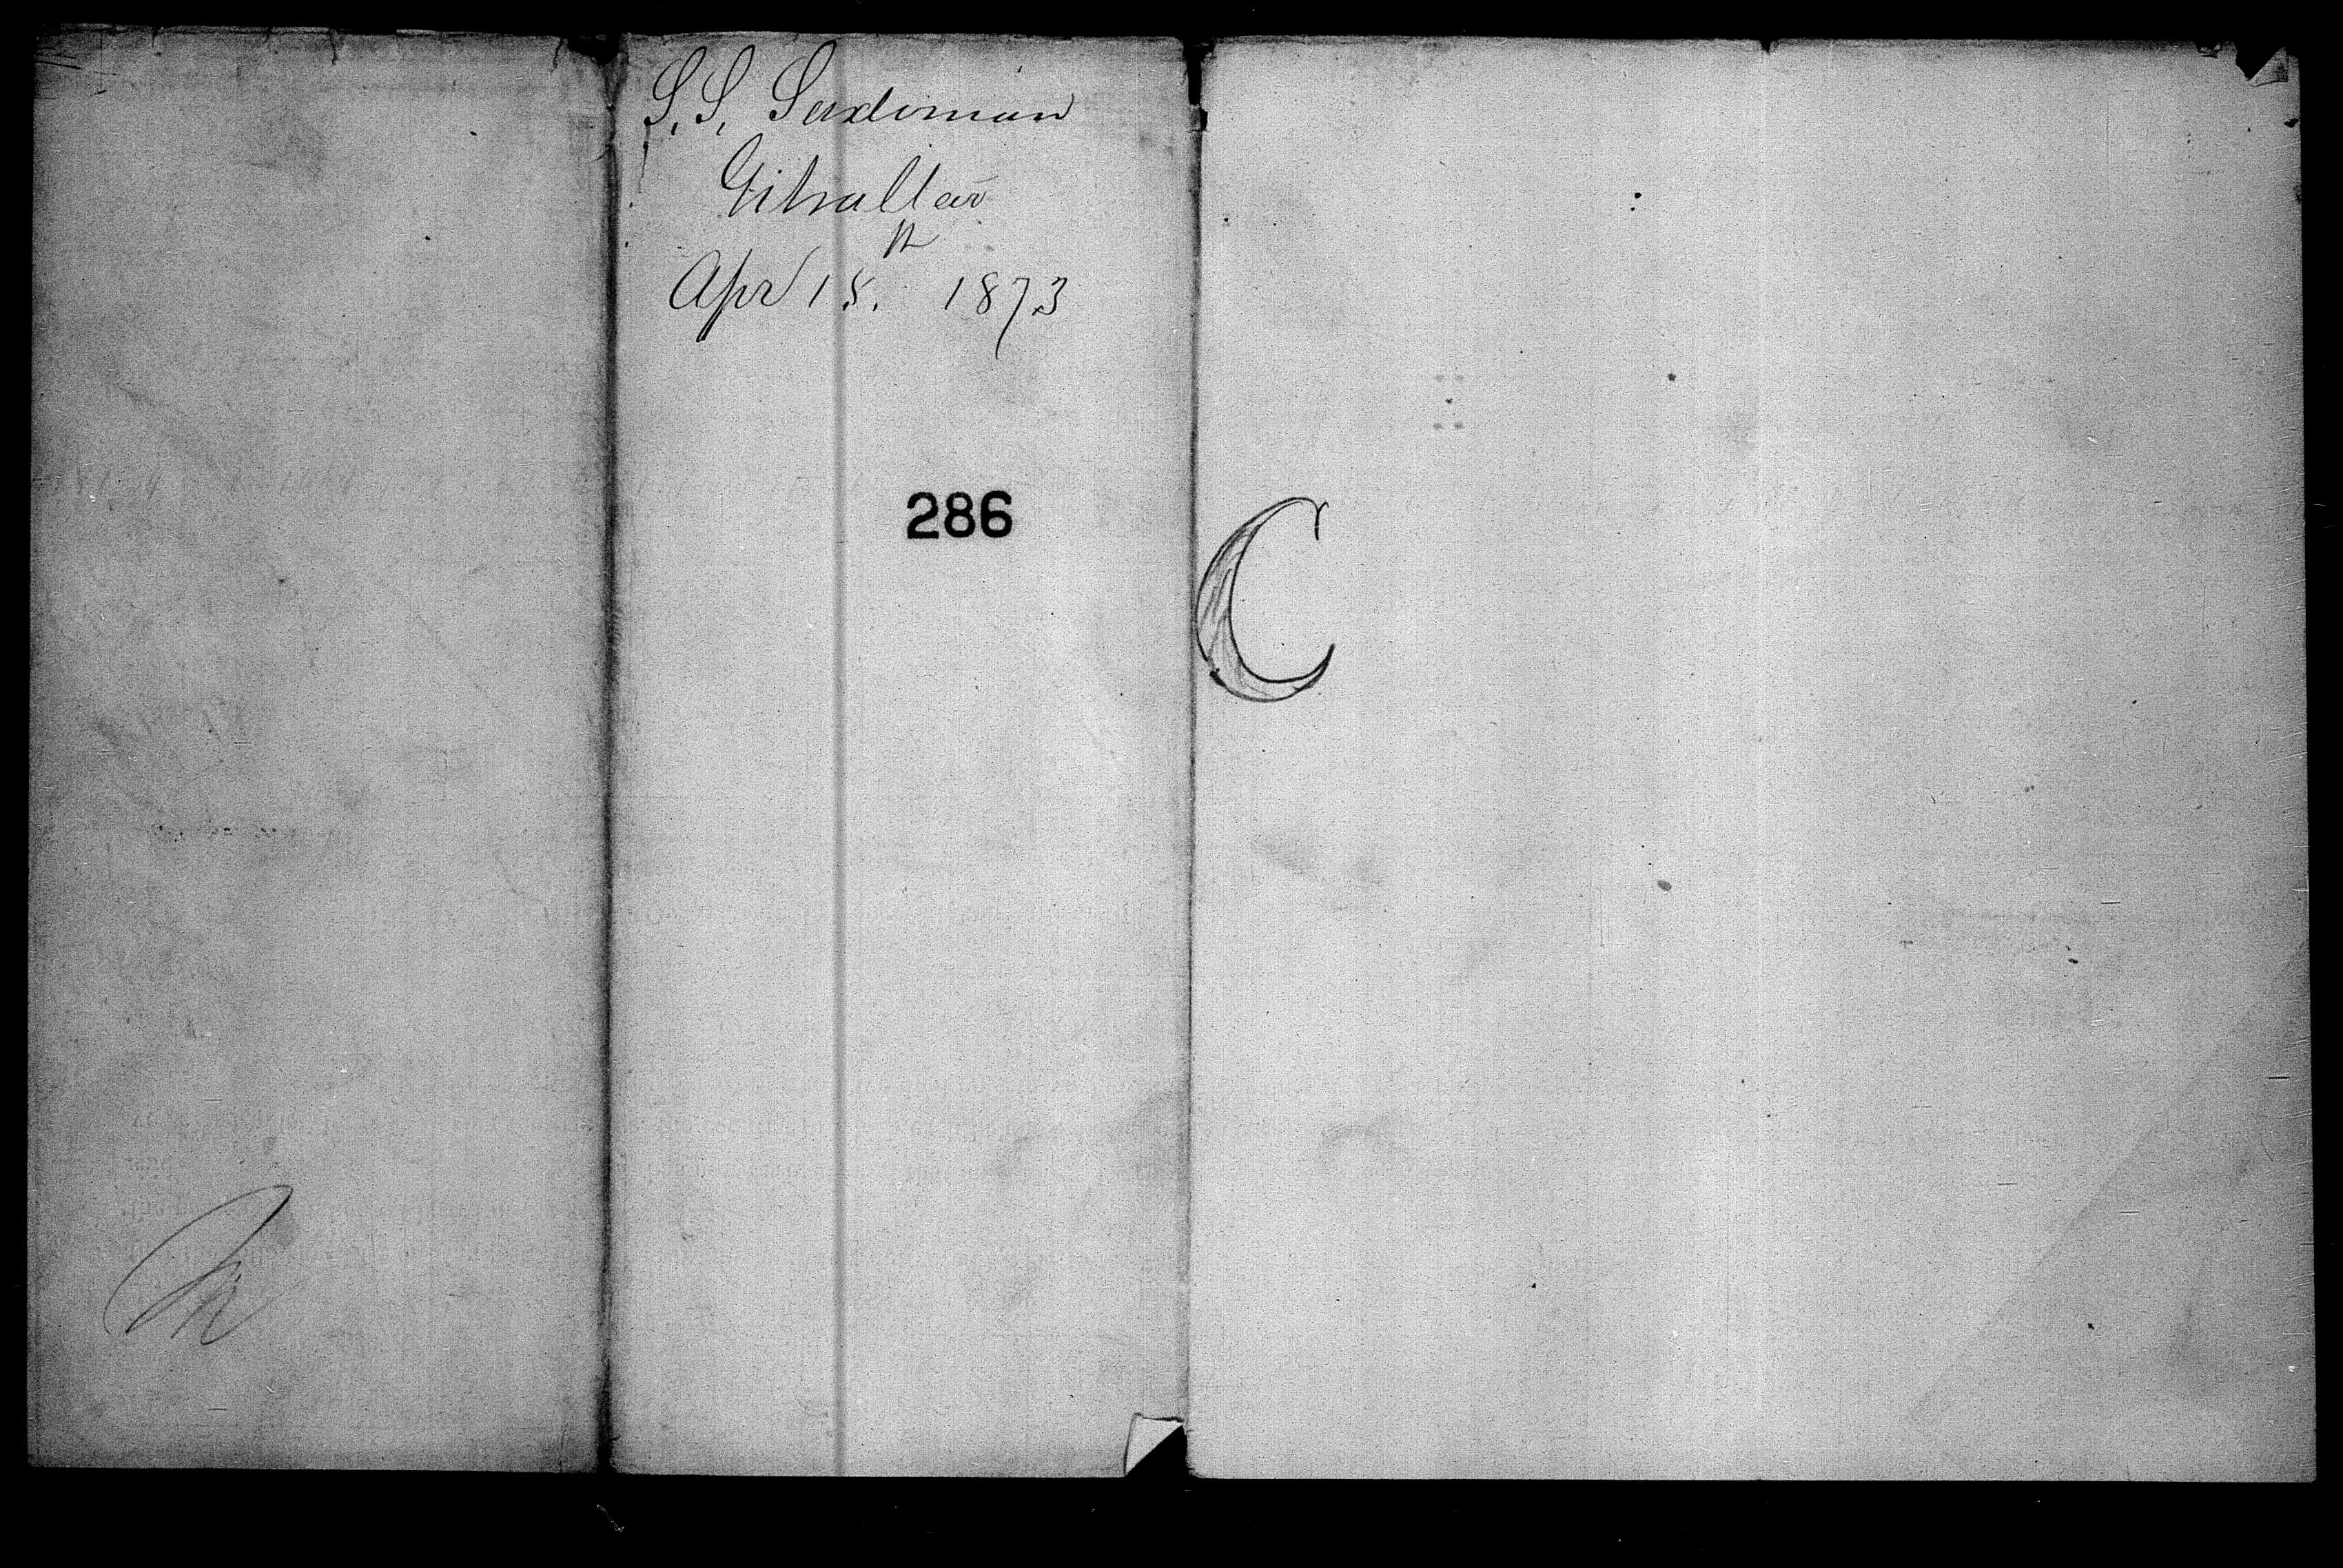 S.S. Sardinian
Gibraltar
Apr 15. 1873
286
C